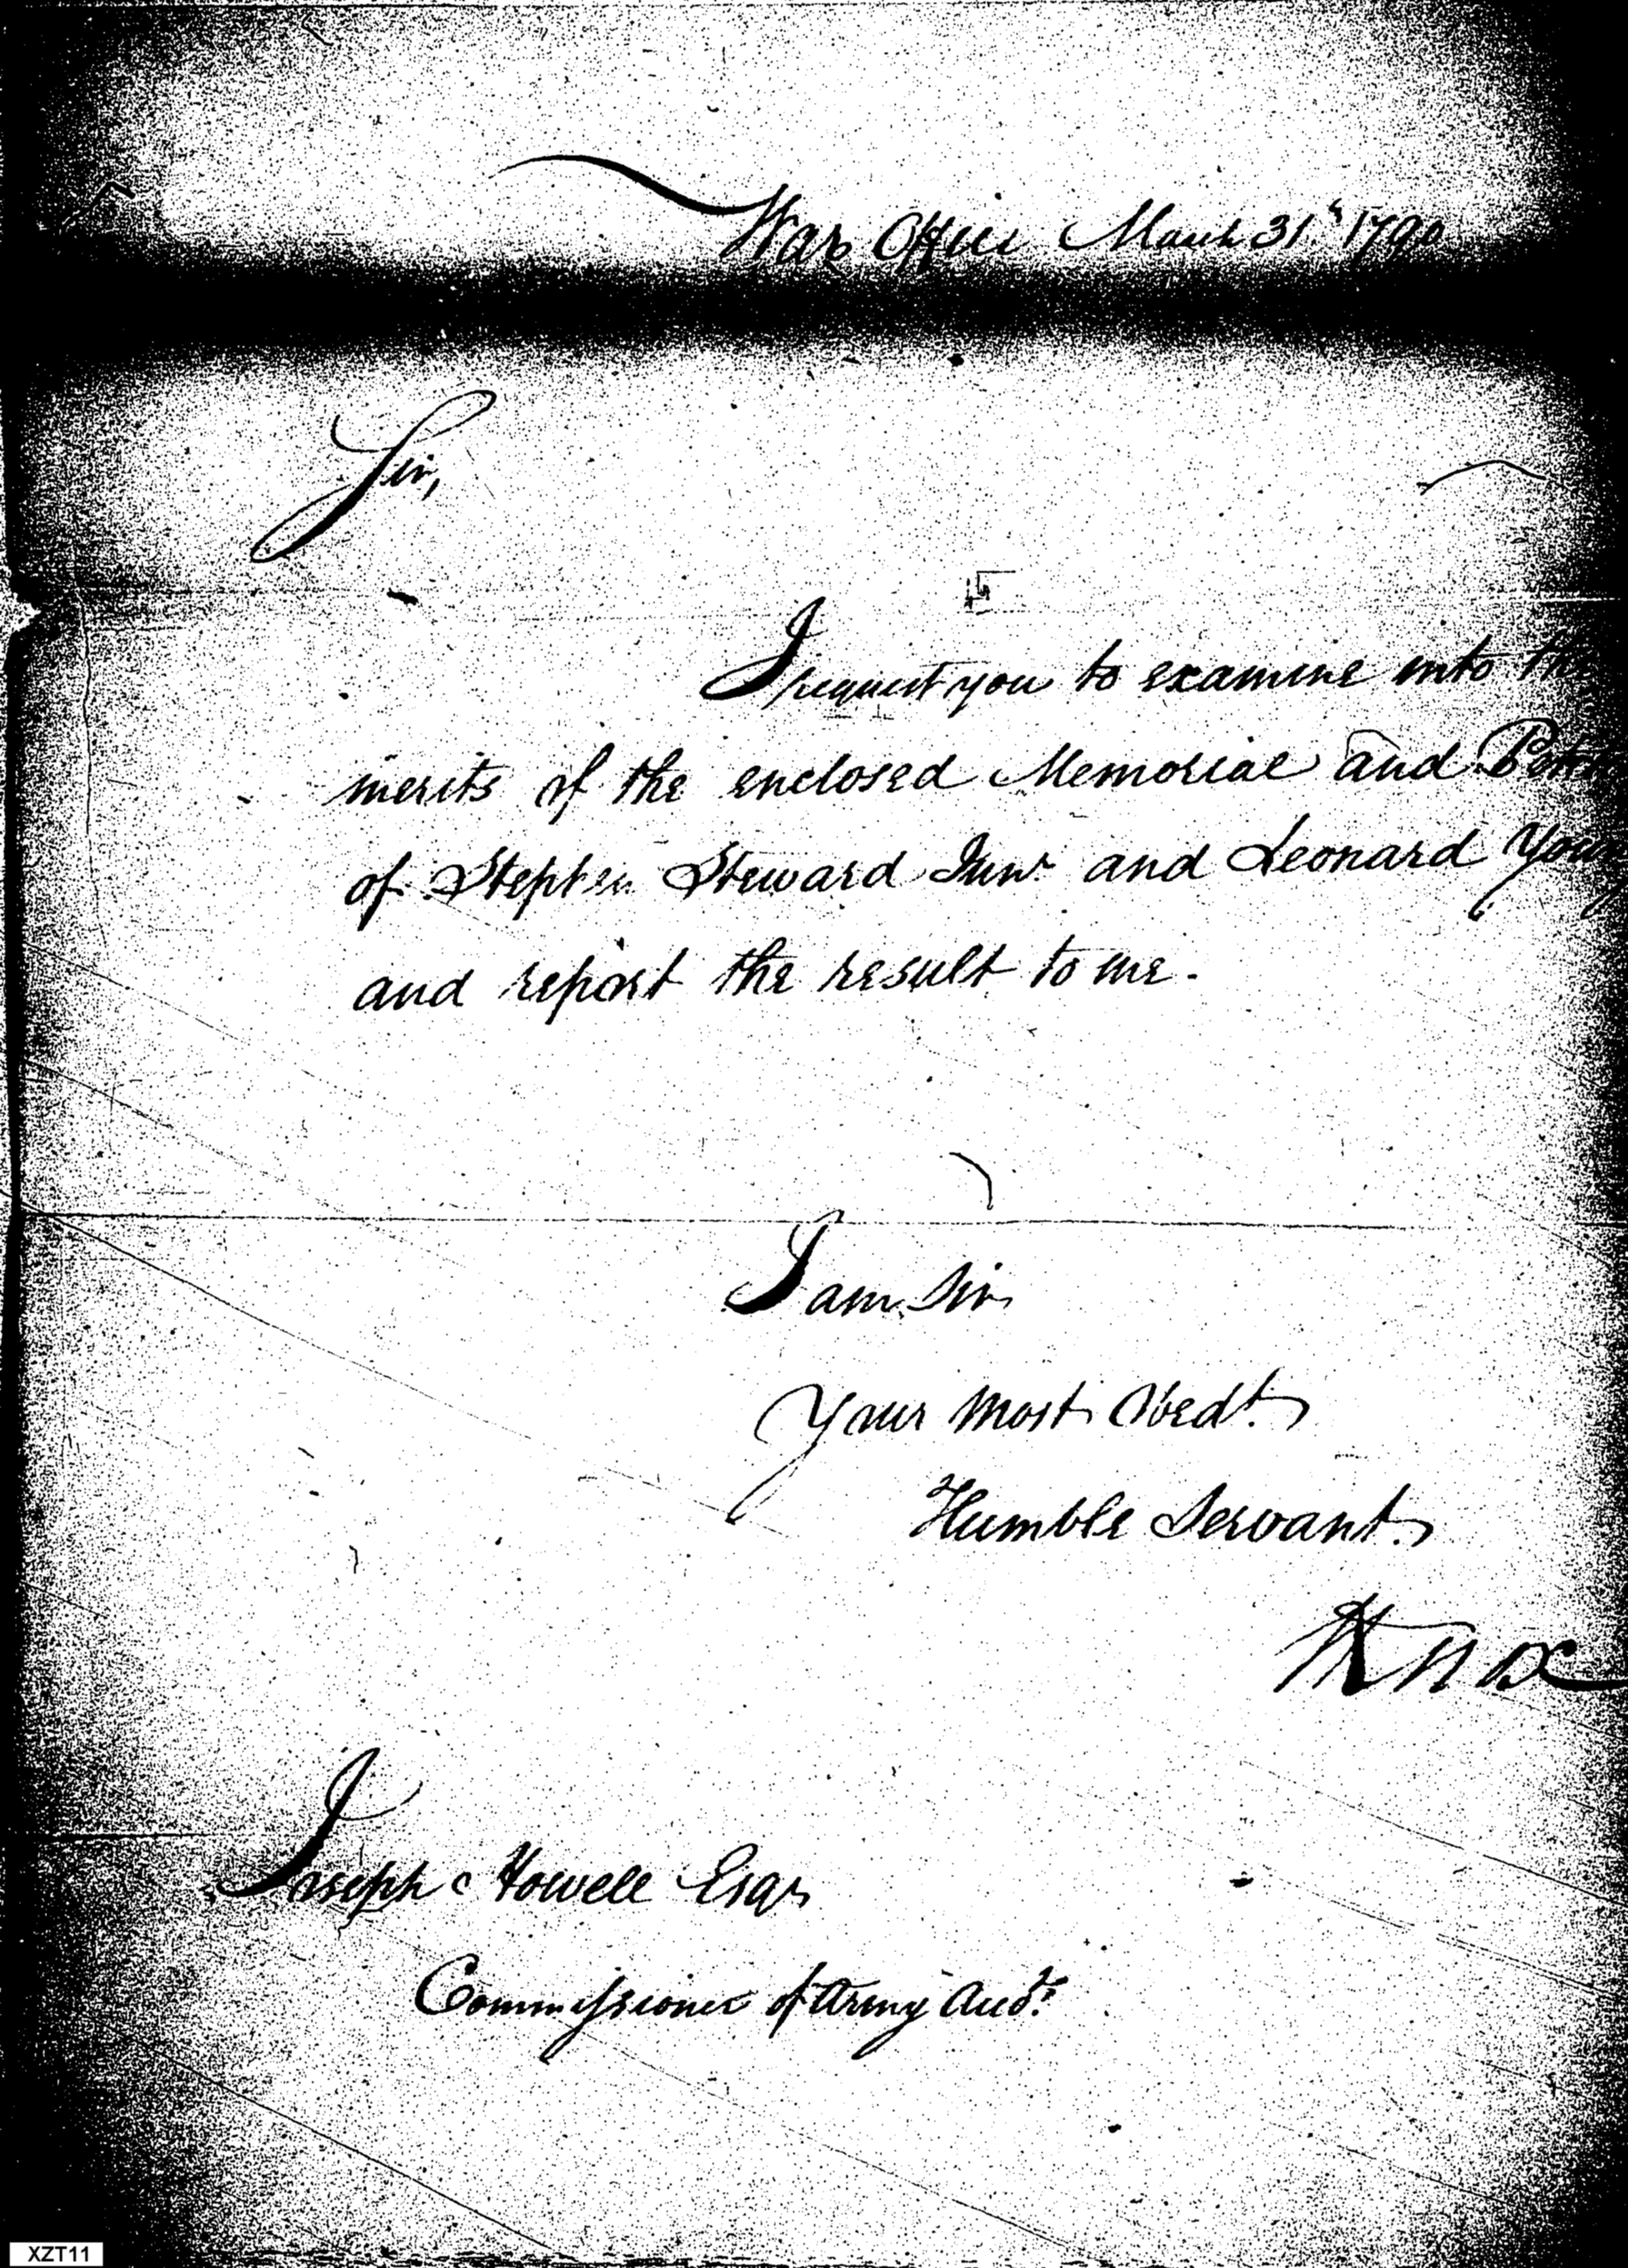 War Office March 31.st 1790
Sir,
I request you to examine into the
merits of the enclosed Memorial and
of Stephen Steward Junr and Leonard
and report the result to me.
I am Sir
Your most Obedt.
Humble Servant.
HKnox
Joseph Howell Esqr
Commissioner of Army
XZT11